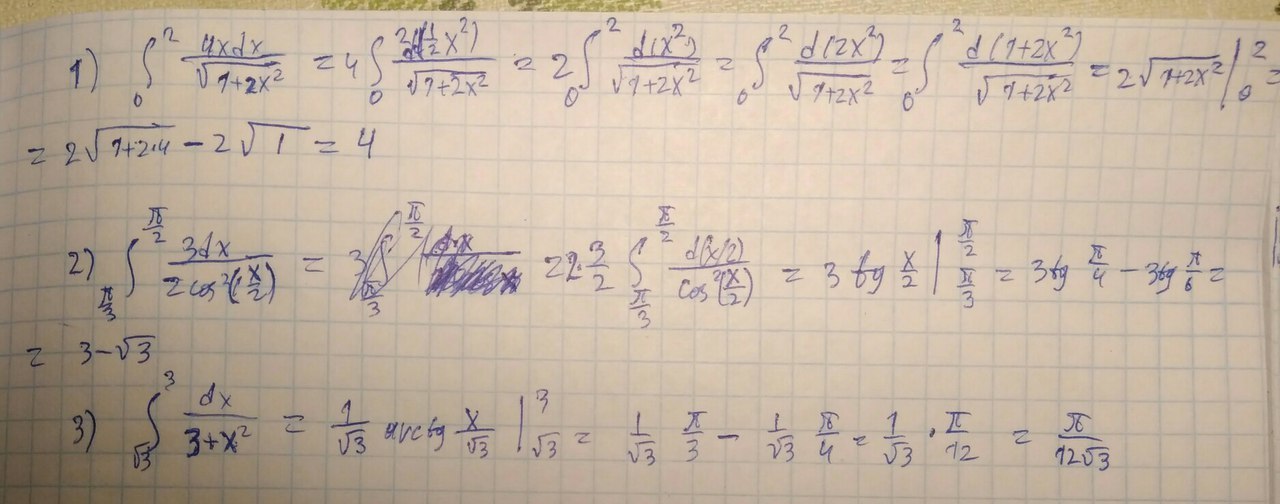 1) ∫₀² 4xdx/√(1+2x²) = 4 ∫₀² d(½x²)/√(1+2x²) = 2 ∫₀² d(x²)/√(1+2x²) = ∫₀² d(2x²)/√(1+2x²) = ∫₀² d(1+2x²)/√(1+2x²) = 2√(1+2x²) |₀² =
= 2√(1+2·4) − 2√1 = 4
2) ∫_{π/3}^{π/2} 3dx/(2cos²(x/2)) = 2·3/2 ∫_{π/3}^{π/2} d(x/2)/cos²(x/2) = 3 tg x/2 |_{π/3}^{π/2} = 3tg π/4 − 3tg π/6 =
= 3−√3
3) ∫_{√3}^{3} dx/(3+x²) = 1/√3 arctg x/√3 |_{√3}^{3} = 1/√3 π/3 − 1/√3 π/4 = 1/√3 · π/12 = π/(12√3)